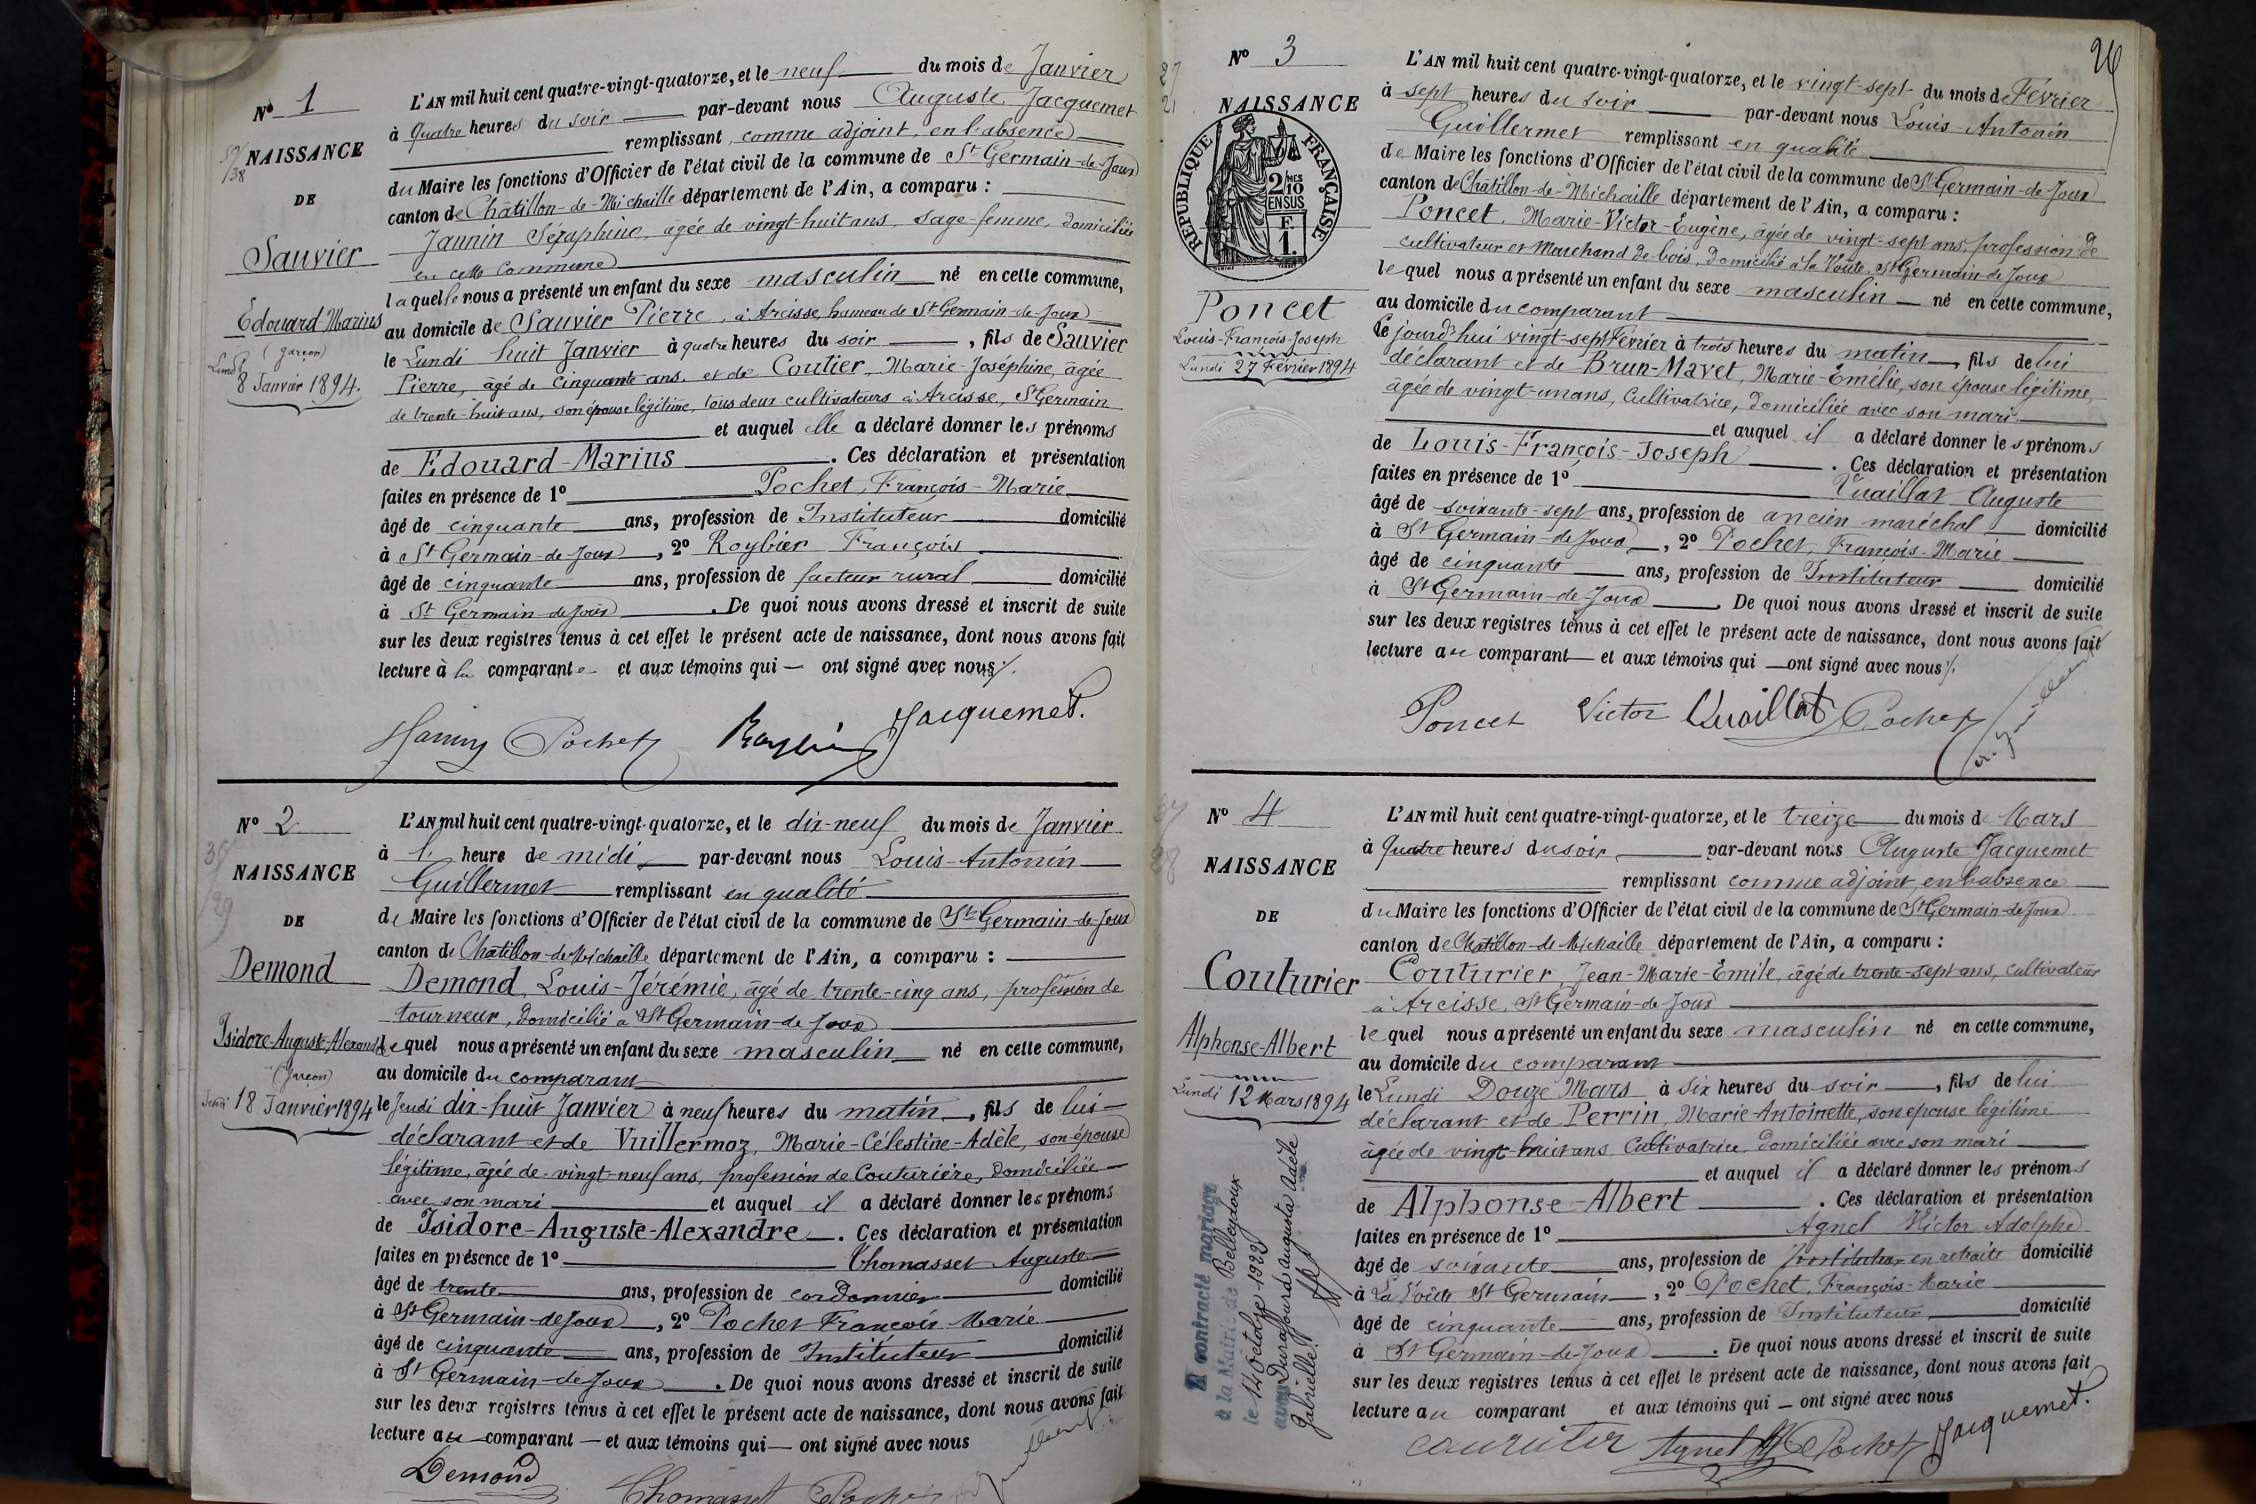 Nº 1
NAISSANCE
DE
Sauvier
Edouard Marius
(garçon)
Lundi
8 Janvier 1894.
L'AN mil huit cent quatre-vingt-quatorze, et le neuf du mois de Janvier
à quatre heures du soir par-devant nous Auguste Jacquemet
remplissant, comme adjoint, en l'absence
du Maire les fonctions d'Officier de l'état civil de la commune de St Germain-de-Joux
canton de Châtillon-de-Michaille département de l'Ain, a comparu :
Jannin Séraphine, âgée de vingt huit ans, sage-femme, domiciliée
en cette commune
laquelle nous a présenté un enfant du sexe masculin né en cette commune,
au domicile de Sauvier Pierre, à Arcisse, hameau de St Germain-de-Joux
le Lundi huit Janvier à quatre heures du soir, fils de Sauvier
Pierre, âgé de cinquante ans, et de Coutier, Marie-Joséphine, âgée
de trente-huit ans, son épouse légitime, tous deux cultivateurs à Arcisse, St Germain
et auquel elle a déclaré donner les prénoms
de Edouard-Marius. Ces déclaration et présentation
faites en présence de 1º Pochet, François-Marie
âgé de cinquante ans, profession de Instituteur domicilié
à St Germain-de-Joux, 2º Roybier François
âgé de cinquante ans, profession de facteur rural domicilié
à St Germain-de-Joux. De quoi nous avons dressé et inscrit de suite
sur les deux registres tenus à cet effet le présent acte de naissance, dont nous avons fait
lecture à la comparante et aux témoins qui ont signé avec nous
Pochet Jacquemet.
Nº 2
NAISSANCE
DE
Demond
Isidore-Auguste-Alexandre
(garçon)
Jeudi 18 Janvier 1894
L'AN mil huit cent quatre-vingt-quatorze, et le dix-neuf du mois de Janvier
à 1 heure de midi par-devant nous Louis-Antonin
Guillermet remplissant en qualité
de Maire les fonctions d'Officier de l'état civil de la commune de St Germain-de-Joux
canton de Chatillon-de-Michaille département de l'Ain, a comparu :
Demond, Louis-Jérémie, âgé de trente-cinq ans, profession de
tourneur, domicilié à St Germain-de-Joux
lequel nous a présenté un enfant du sexe masculin né en cette commune,
au domicile du comparant
le Jeudi dix-huit Janvier à neuf heures du matin, fils de lui
déclarant et de Vuillermoz, Marie-Célestine-Adèle, son épouse
légitime, âgée de vingt-neuf ans, profession de Couturière, domiciliée
avec son mari et auquel il a déclaré donner les prénoms
de Isidore-Auguste-Alexandre. Ces déclaration et présentation
faites en présence de 1º Thomasset Auguste
âgé de trente ans, profession de cordonnier domicilié
à St Germain-de-Joux, 2º Pochet François-Marie
âgé de cinquante ans, profession de Instituteur domicilié
à St Germain-de-Joux. De quoi nous avons dressé et inscrit de suite
sur les deux registres tenus à cet effet le présent acte de naissance, dont nous avons fait
lecture au comparant et aux témoins qui ont signé avec nous
Demond Thomasset Pochet
26
Nº 3
NAISSANCE
RÉPUBLIQUE FRANÇAISE
2/10 MES
EN SUS
F.
1.
Poncet
Louis-François-Joseph
Lundi 27 Février 1894
L'AN mil huit cent quatre-vingt-quatorze, et le vingt-sept du mois de Février
à sept heures du soir par-devant nous Louis-Antonin
Guillermet remplissant en qualité
de Maire les fonctions d'Officier de l'état civil de la commune de St Germain-de-Joux
canton de Châtillon-de-Michaille département de l'Ain, a comparu :
Poncet, Marie-Victor-Eugène, âgée de vingt-sept ans, profession de
cultivateur et Marchand de bois, domicilié à la Voûte, St Germain-de-Joux
lequel nous a présenté un enfant du sexe masculin né en cette commune,
au domicile du comparant
ce jourd'hui vingt-sept Février à trois heures du matin, fils de lui
déclarant et de Brun-Mavet, Marie-Emélie, son épouse légitime,
âgée de vingt-un ans, Cultivatrice, domiciliée avec son mari
et auquel il a déclaré donner les prénoms
de Louis-François-Joseph. Ces déclaration et présentation
faites en présence de 1º Vuaillat Auguste
âgé de soixante-sept ans, profession de ancien maréchal domicilié
à St Germain-de-Joux, 2º Pochet, François-Marie
âgé de cinquante ans, profession de Instituteur domicilié
à St Germain-de-Joux. De quoi nous avons dressé et inscrit de suite
sur les deux registres tenus à cet effet le présent acte de naissance, dont nous avons fait
lecture au comparant et aux témoins qui ont signé avec nous
Poncet Victor Vuaillat Pochet
Nº 4
NAISSANCE
DE
Couturier
Alphonse-Albert
Lundi 12 Mars 1894
A contracté mariage
à la Mairie de Belleydoux
le 14 octobre 1922
avec Duraffourd Augusta Adèle
Gabrielle.
L'AN mil huit cent quatre-vingt-quatorze, et le treize du mois de Mars
à quatre heures du soir par-devant nous Auguste Jacquemet
remplissant comme adjoint, en l'absence
du Maire les fonctions d'Officier de l'état civil de la commune de St Germain-de-Joux
canton de Chatillon-de-Michaille département de l'Ain, a comparu :
Couturier, Jean-Marie-Emile, âgé de trente-sept ans, cultivateur
à Arcisse, St Germain-de-Joux
lequel nous a présenté un enfant du sexe masculin né en cette commune,
au domicile du comparant
le Lundi Douze Mars à six heures du soir, fils de lui
déclarant et de Perrin, Marie-Antoinette, son épouse légitime
âgée de vingt-huit ans, Cultivatrice, domiciliée avec son mari
et auquel il a déclaré donner les prénoms
de Alphonse-Albert. Ces déclaration et présentation
faites en présence de 1º Agnel Victor Adolphe
âgé de soixante ans, profession de Instituteur en retraite domicilié
à La Voûte St Germain, 2º Pochet, François-Marie
âgé de cinquante ans, profession de Instituteur domicilié
à St Germain-de-Joux. De quoi nous avons dressé et inscrit de suite
sur les deux registres tenus à cet effet le présent acte de naissance, dont nous avons fait
lecture au comparant et aux témoins qui ont signé avec nous
couturier Agnel Pochet Jacquemet.